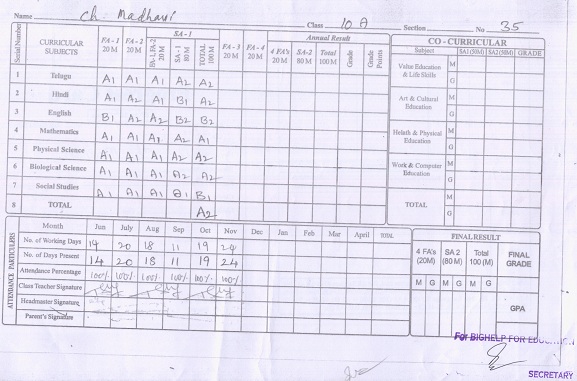 Name Ch. Madhavi Class 10 A Section No 35
Serial Number CURRICULAR SUBJECTS FA - 1 20 M FA - 2 20 M FA-1, FA-2 20 M SA - 1 SA - 1 80 M TOTAL 100 M FA - 3 20 M FA - 4 20 M Annual Result 4 FA's 20 M SA-2 80 M Total 100 M Grade Grade Points
1 Telugu A1 A1 A1 A2 A2
2 Hindi A1 A2 A1 B1 A2
3 English B1 A2 A2 B2 B2
4 Mathematics A1 A1 A1 A2 A1
5 Physical Science A1 A1 A1 A2 A2
6 Biological Science A1 A1 A1 A2 A2
7 Social Studies A1 A1 A1 B1
8 TOTAL A2
CO - CURRICULAR
Subject SA1 (50M) SA2 (50M) GRADE
Value Education & Life Skills M G
Art & Cultural Education M G
Helath & Physical Education M G
Work & Computer Education M G
TOTAL M G
ATTENDANCE PARTICULERS
Month Jun July Aug Sep Oct Nov Dec Jan Feb Mar April TOTAL
No. of Working Days 14 20 18 11 19 24
No. of Days Present 14 20 18 11 19 24
Attendance Percentage 100% 100% 100% 100% 100% 100%
Class Teacher Signature
Headmaster Signature
Parent's Signature
FINAL RESULT
4 FA's (20M) SA 2 (80 M) Total 100 (M) FINAL GRADE
M G M G M G
GPA
For BIGHELP FOR
SECRETARY